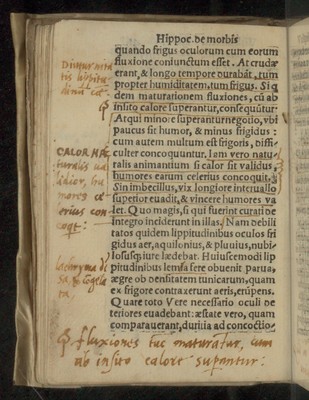 Hippoc. de morbis
quando frigus oculorum cum eorum
fluxione coniunctum esset. At crudæ
erant, & longo tempore durabāt, tum
propter humiditatem, tum frigus. Si
dem maturationem fluxiones, cū ab
insito calore superantur, consequūtur
Atqui minore superantur negocio, vbi
paucus sit humor, & minus frigidus :
cum autem multum est frigoris, diffi-
culter concoquuntur. Iam vero natu-
ralis animantium si calor sit validus,
humores earum celerius concoquit.
Sin imbecillus, vix longiore interuallo
superior euadit, & vincere humores va
let. Quo magis, si qui fuerint curati de
integro inciderunt in illas. Nam debili
tatos quidem lippitudinibus oculos fri
gidus aer, aquilonius, & pluuius, nubi-
losusque iure lædebat. Huiuscemodi lip
pitudinibus lemæ fere obuenit parua,
ægre ob densitatem tunicarum, quam
ex frigore contraxerunt aeris, erūpens.
Quare toto Vere necessario oculi de
teriores euadebant: æstate vero, quam
comparauerant, duritia ad concoctio-
CALOR NA
turalis ua
lidior, hu
mores ce
lerius con
coqt:
lachryma
fluxiones tūc maturātur, cum
ab insito calore superantur: